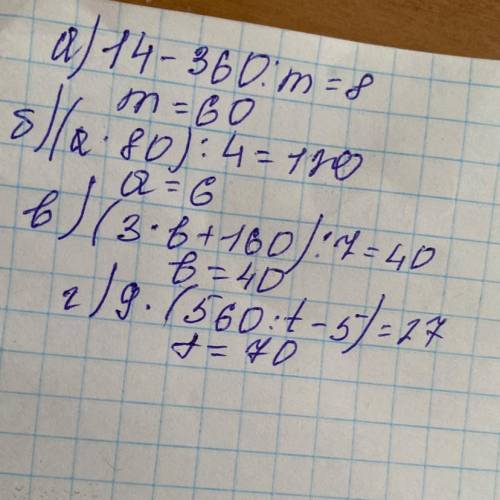 а) 14 - 360 : m = 8
m = 60
б) (a · 80) : 4 = 120
a = 6
в) (3 · в + 160) : 7 = 40
в = 40
г) 9 · (560 : t - 5) = 27
t = 70